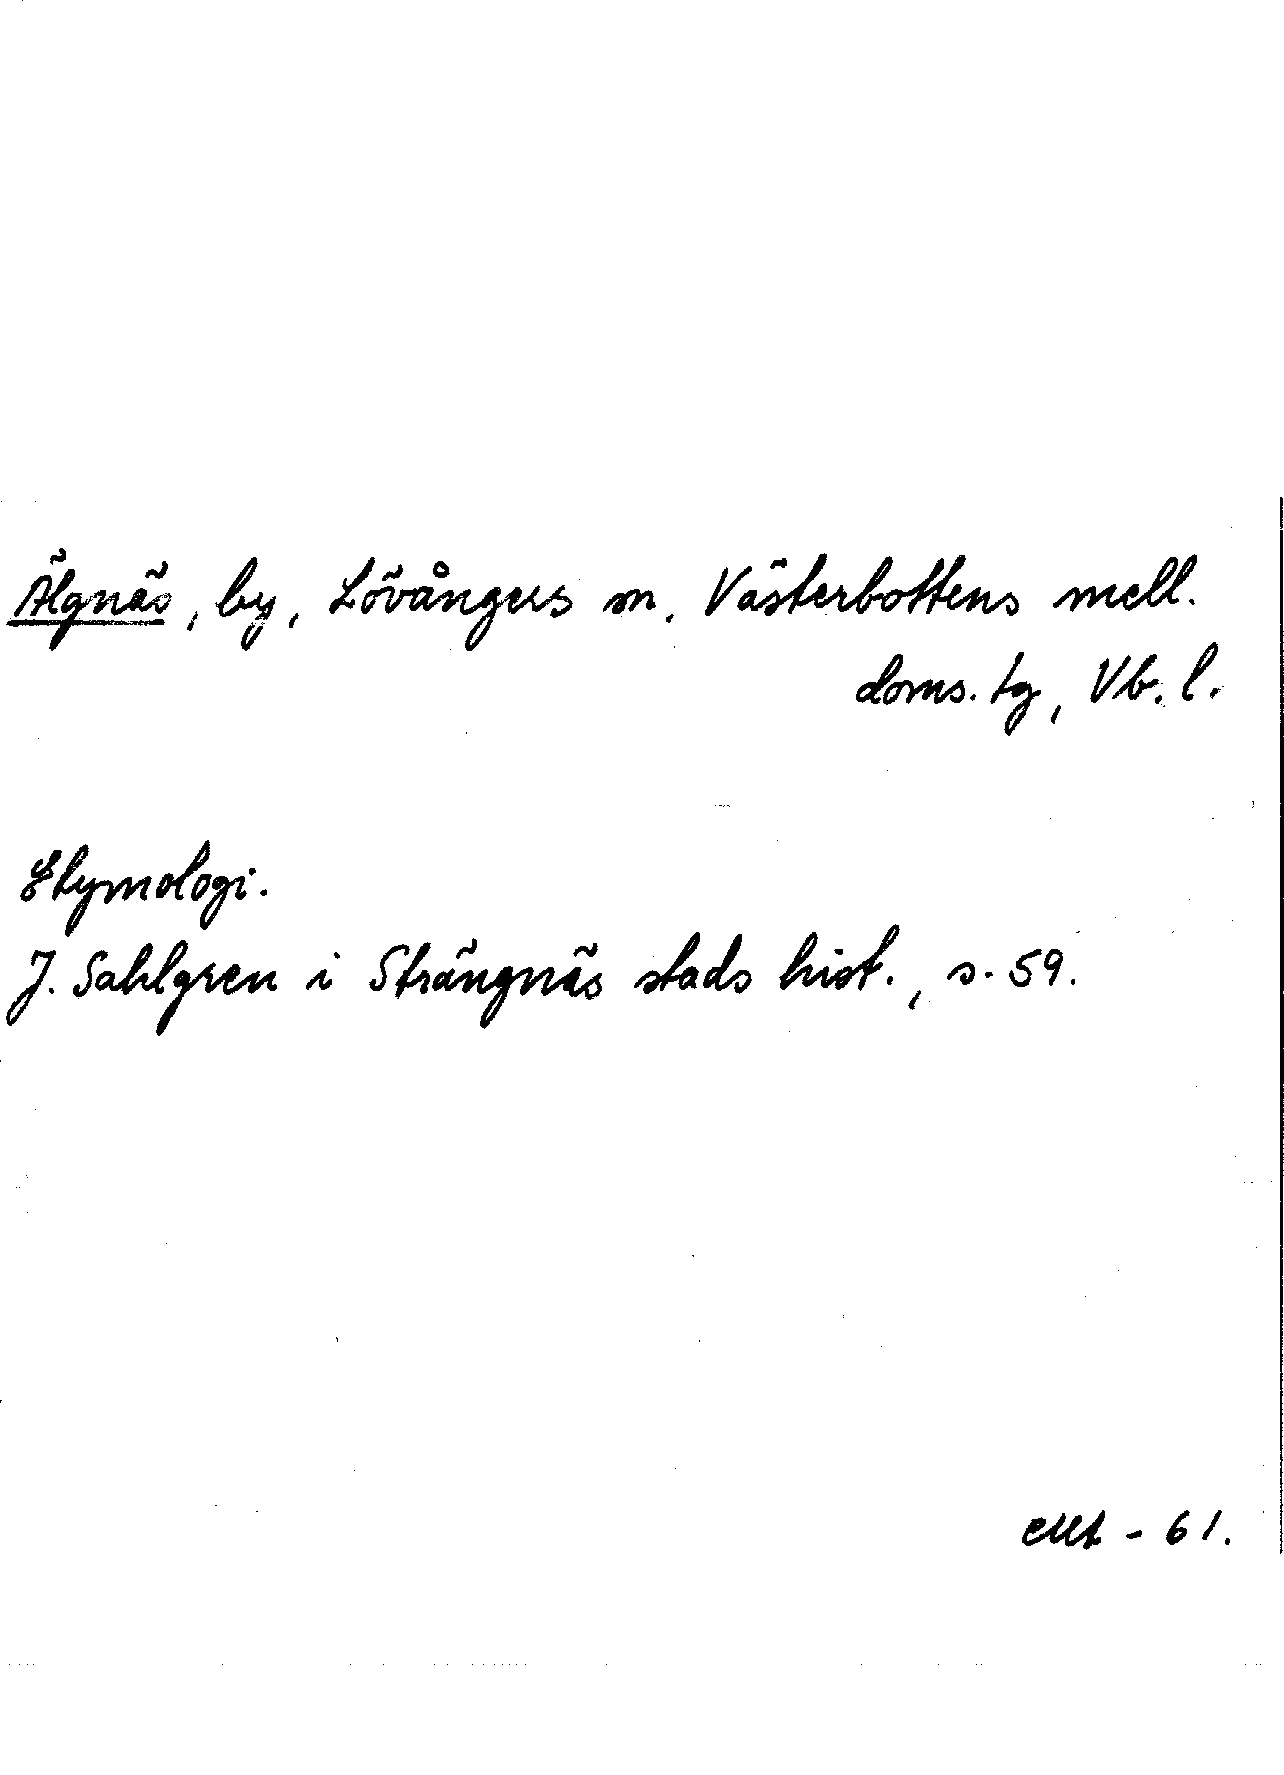 Älgnäs, by, Lövångers sn, Västerbottens mell.
doms. tg, Vb. l.
Etymologi.
J. Sahlgren i Strängnäs stads hist., s. 59.
- 61.